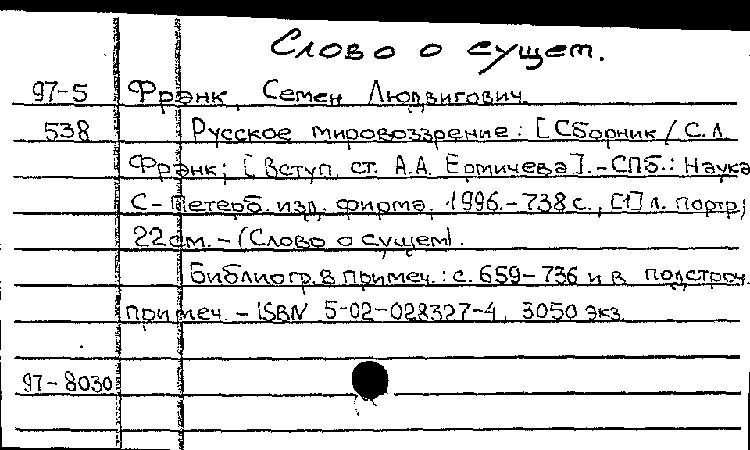 Слово о сущем.
97-5 Фрэнк, Семен Людвигович.
538 Русское мировоззрение: [Сборник / С.Л.
Фрэнк; [Вступ. ст. А.А. Ермичева]. - СПб.: Наука
С-Петерб. изд. фирма, 1996. - 738 с., [1] л. портр;
22 см. - (Слово о сущем).
Библиогр. в примеч.: с. 659-736 и в подстроч.
примеч. - ISBN 5-02-028327-4, 3050 экз.
97-8030